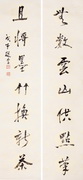 無數雲山供點筆
且將墨竹換新茶